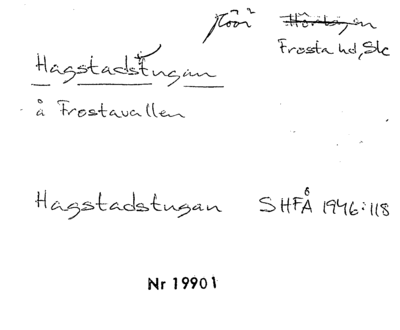 Höör
Frosta hd, Sk
Hagstadstugan
å Frostavallen
Hagstadstugan SHFÅ 1946:118
Nr 19901